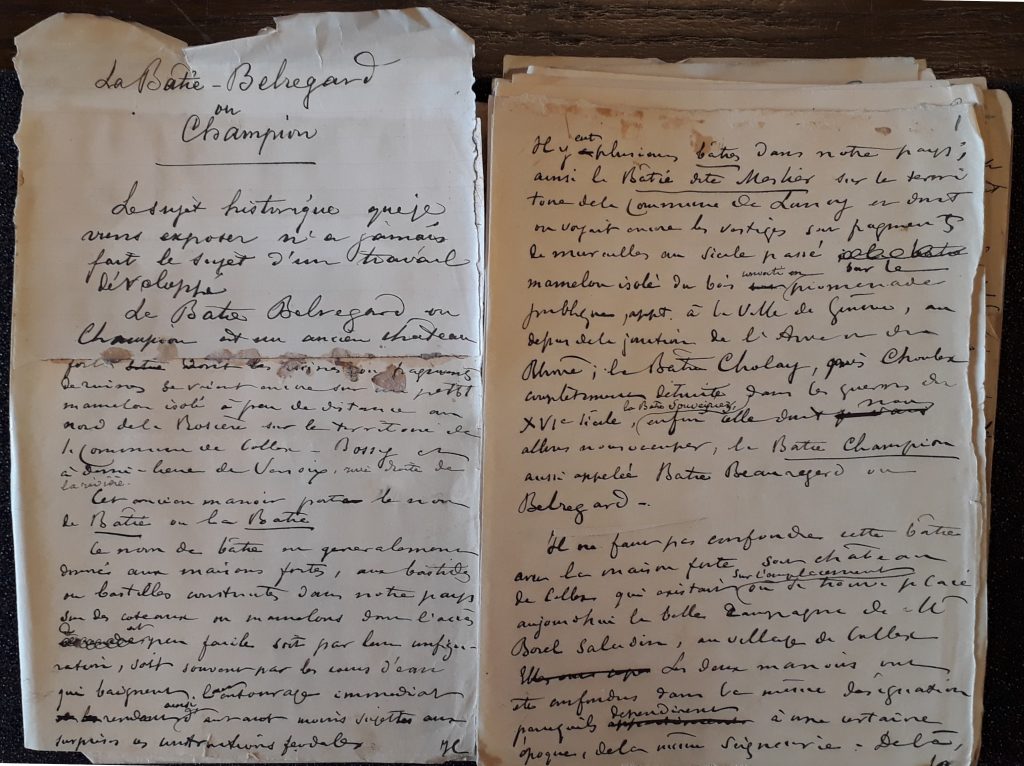 La Bâtie - Belregard
ou
Champion
Le sujet historique que je
viens exposer n'a jamais
fait le sujet d'un travail
développé
La Bâtie Belregard ou
Champion est un ancien château
fort dont les ruines ou fragments
de ruines se voient encore sur un petit
mamelon isolé à peu de distance au
nord de la Bossière sur le territoire de
la Commune de Collex-Bossy et
à demi-lieue de Versoix, rive droite de
la rivière.
Cet ancien manoir porta le nom
de Bâtie ou la Bâtie
Ce nom de bâtie ou généralement
donné aux maisons fortes, aux bastides
ou bastilles construites dans notre pays
sur des coteaux ou mamelons dont l'accès
est peu facile soit par leur configu-
ration, soit souvent par les cours d'eau
qui baignent leur entourage immédiat
rendant ainsi moins sujettes aux
surprises ces constructions féodales
1
Il y eut plusieurs bâties dans notre pays;
ainsi la Bâtie dite Meslier sur le terri
toire de la Commune de et dont
on voyait encore les vestiges sur fragments
de murailles au siècle passé sur le
mamelon isolé du bois converti en promenades
publiques, appt. à la Ville de Genève, au
dessus de la jonction de l'Arve et du
Rhône; la Bâtie Cholay, près Choulex
complètement détruite dans les guerres du
XVIe siècle, la Bâtie Souveyraz, enfin celle dont nous
allons nous occuper, la Bâtie Champion
aussi appelée Bâtie Beauregard ou
Belregard -.
Il ne faut pas confondre cette bâtie
avec la maison forte ou château
de Collex qui existait sur l'emplacement où se trouve placé
aujourd'hui la belle Campagne de Mr
Borel Saladin, au village de Collex
Les deux manoirs ont
été confondus dans la même désignation
parcequ'ils dépendirent à une certaine
époque, de la même Seigneurie. De là,